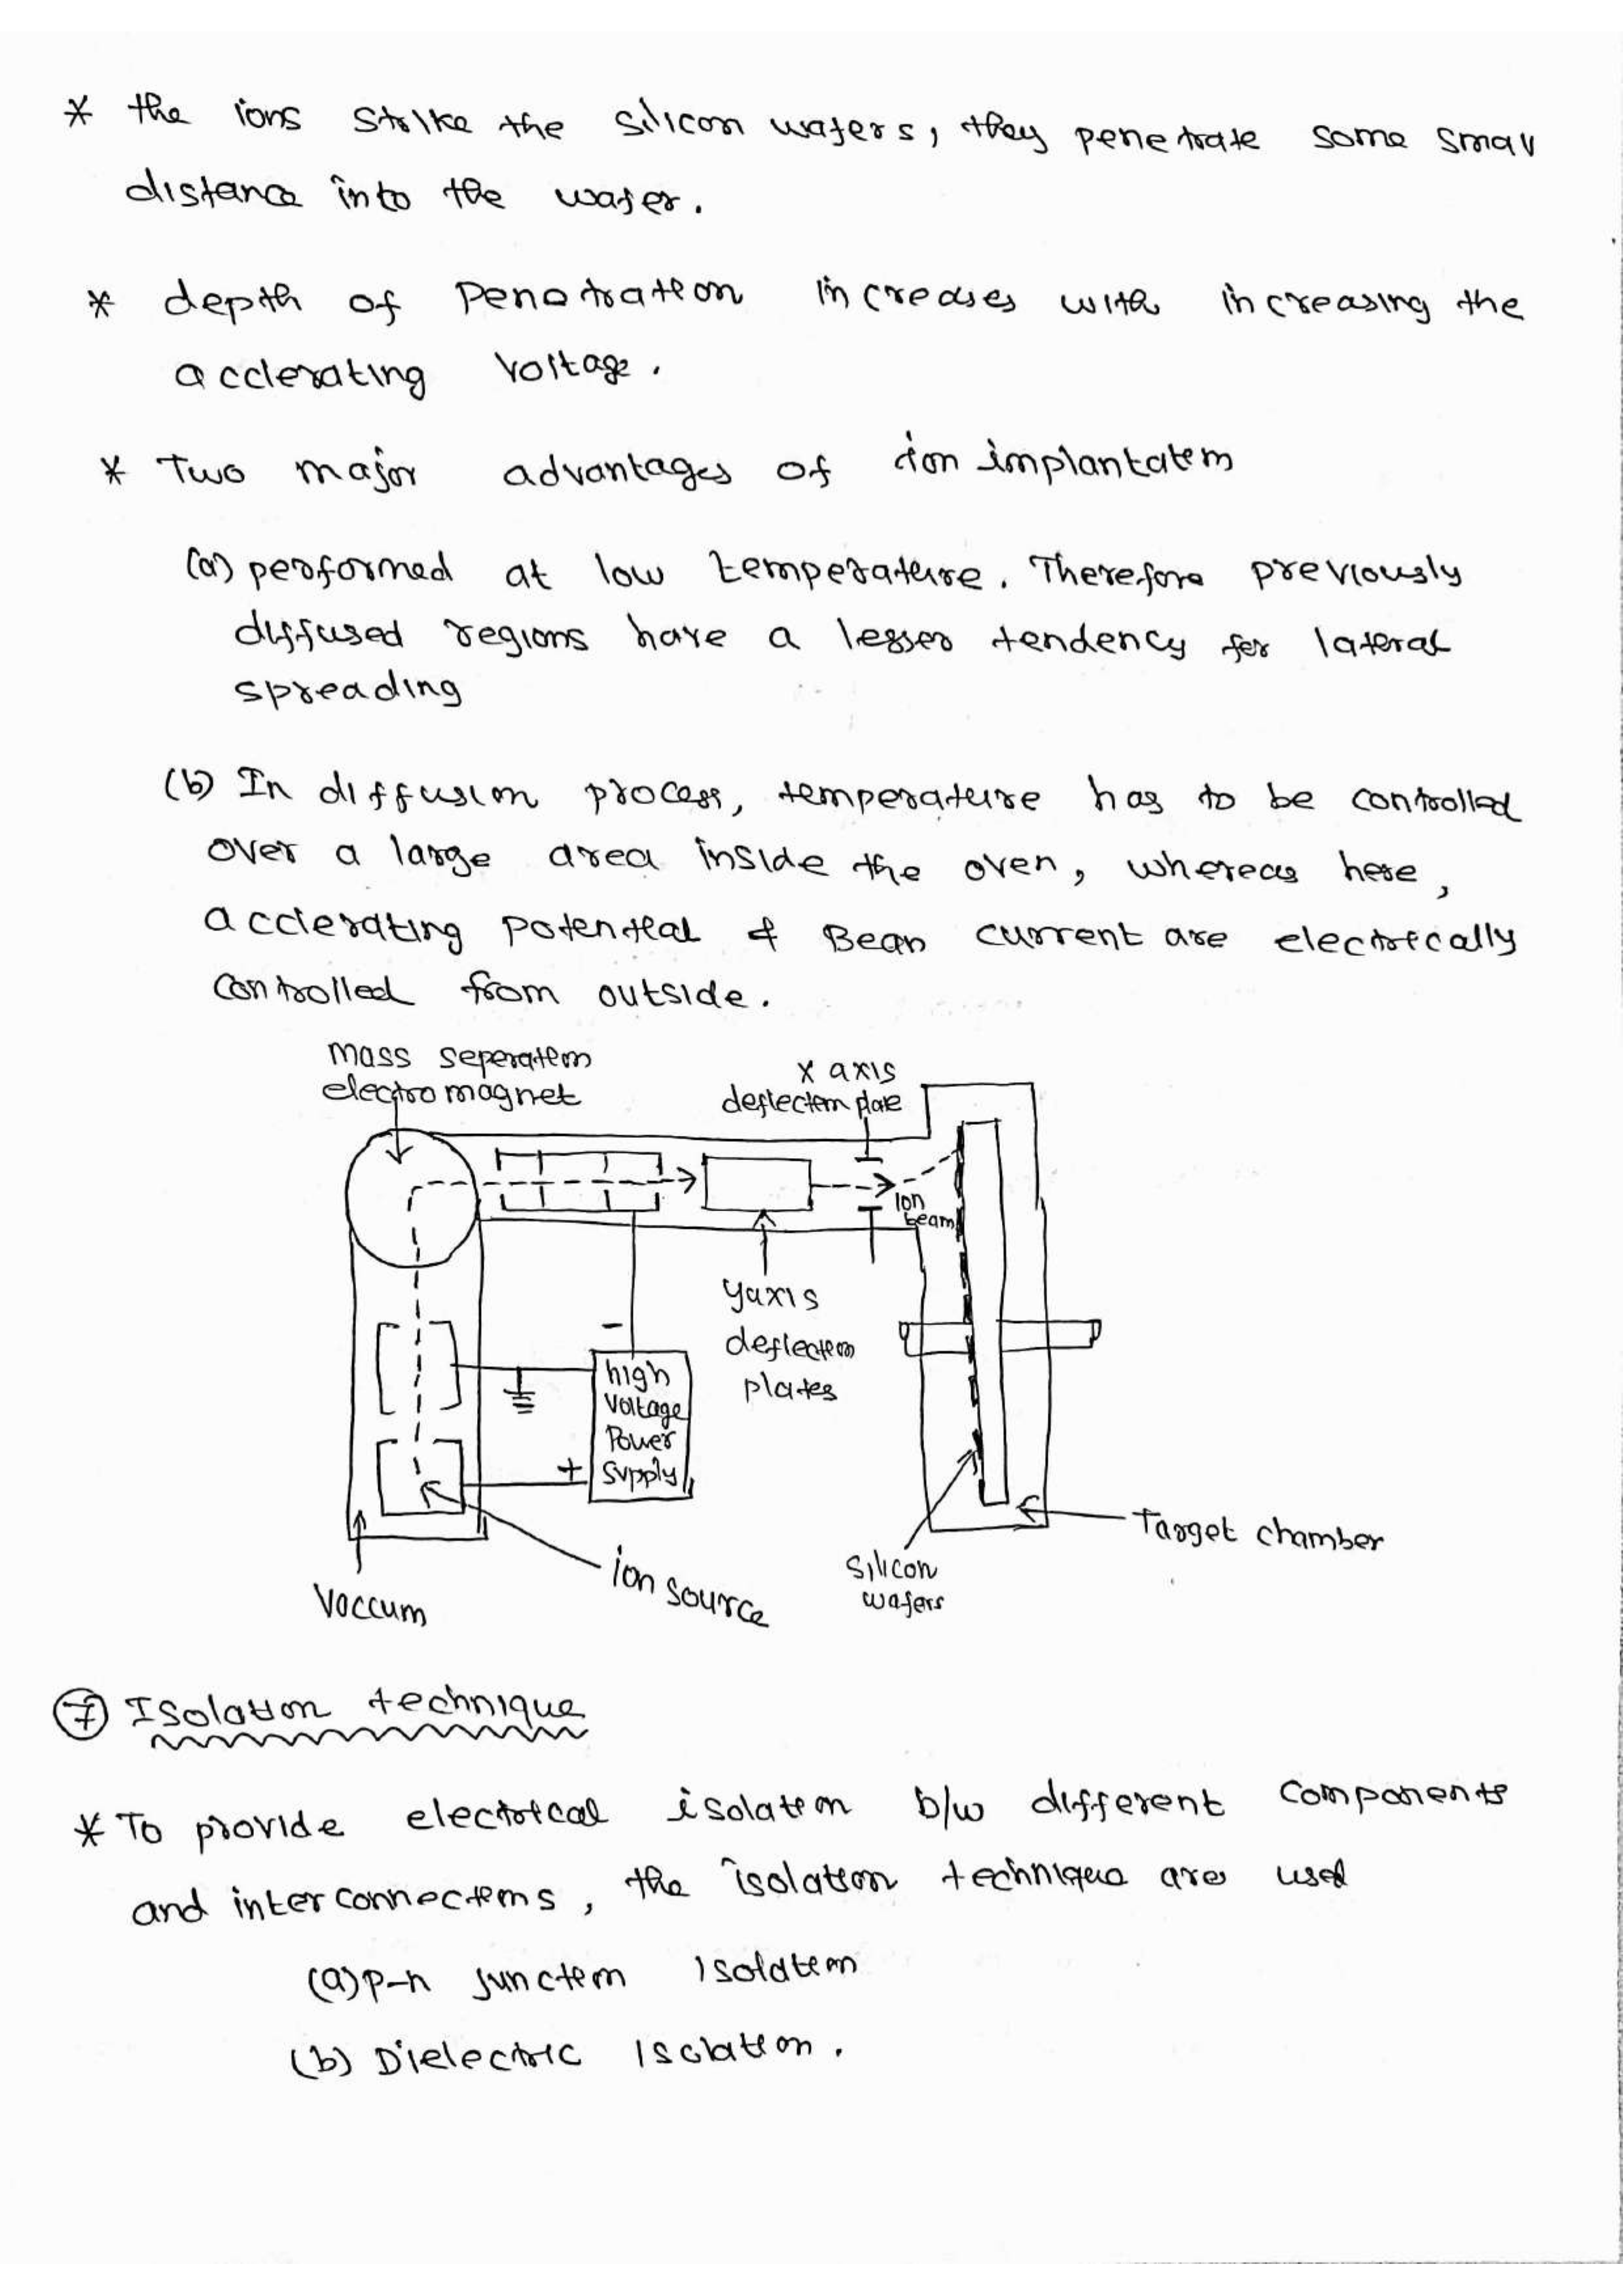 * the ions strike the silicon wafers, they penetrate some small
distance into the wafer.
* depth of Penetration increases with increasing the
acclerating voltage.
* Two major advantages of ion implantation
(a) performed at low temperature. Therefore previously
diffused regions have a lesser tendency for lateral
spreading
(b) In diffusion process, temperature has to be controlled
over a large area inside the oven, whereas here,
acclerating potential & Bean current are electrically
controlled from outside.
mass seperation
electromagnet
x axis
deflection plate
Ion
beam
yaxis
deflection
plates
-
high
voltage
Power
supply
+
Target chamber
ion source
silicon
wafers
Voccum
7 Isolation technique
* To provide electrical isolation b/w different components
and interconnections, the isolation technique are used
(a) p-n junction isolation
(b) Dielectric Isolation.